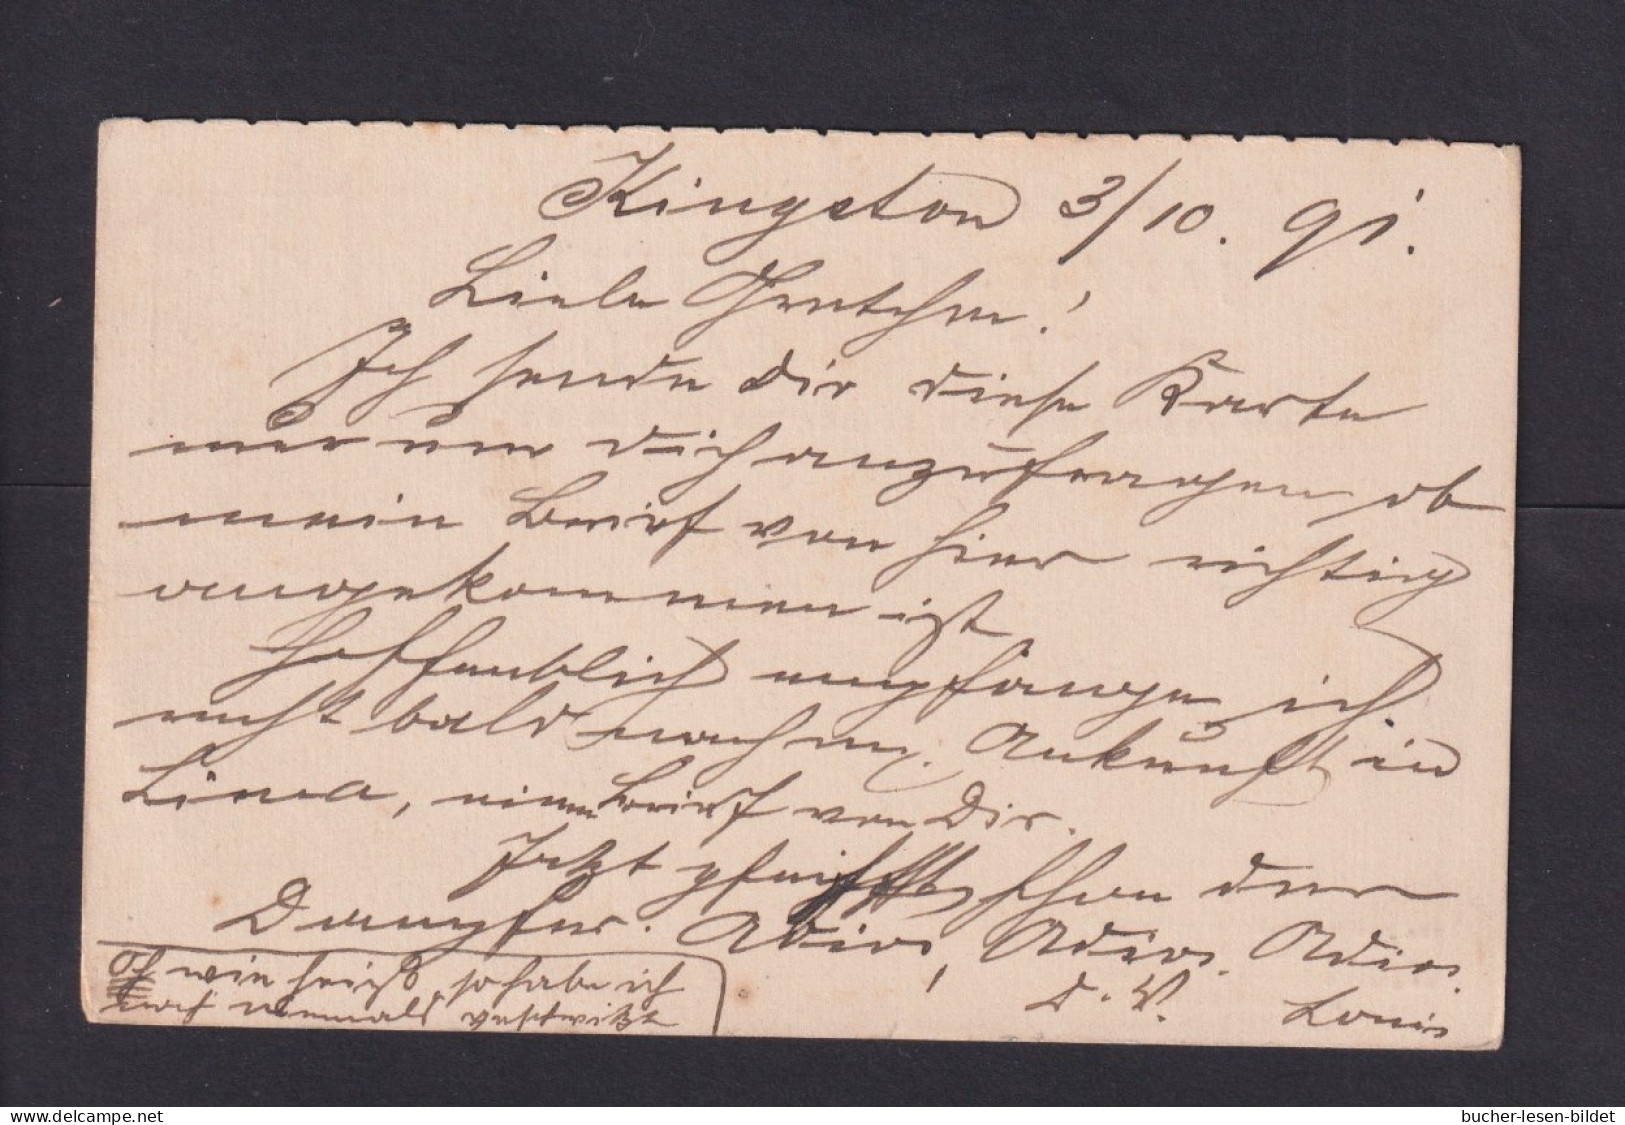 Kingston 3/10. 91.
Liebe Gretchen!
Ich sende Dir diese Karte
nur um Dich anzufragen, ob
mein Brief von hier richtig
angekommen ist.
Hoffentlich empfange ich
recht bald nach m. Ankunft in
Lima, einen Brief von Dir.
Jetzt pfeifft schon der
Dampfer. Adios, Adios. Adios.
D. V. Louis
Oh wie heiß, so habe ich
noch niemals geschwitzt
bucher-lesen-bildet
delcampe.net